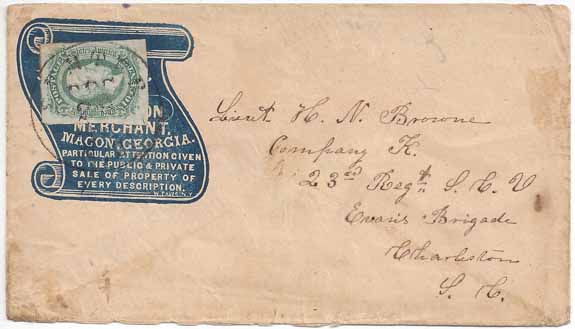 MERCHANT,
MACON, GEORGIA.
PARTICULAR ATTENTION GIVEN
TO THE PUBLIC & PRIVATE
SALE OF PROPERTY OF
EVERY DESCRIPTION.
Lieut. H. N. Browne
Company K.
23rd Regt. S. C. V
Evans Brigade
Charleston
S. C.